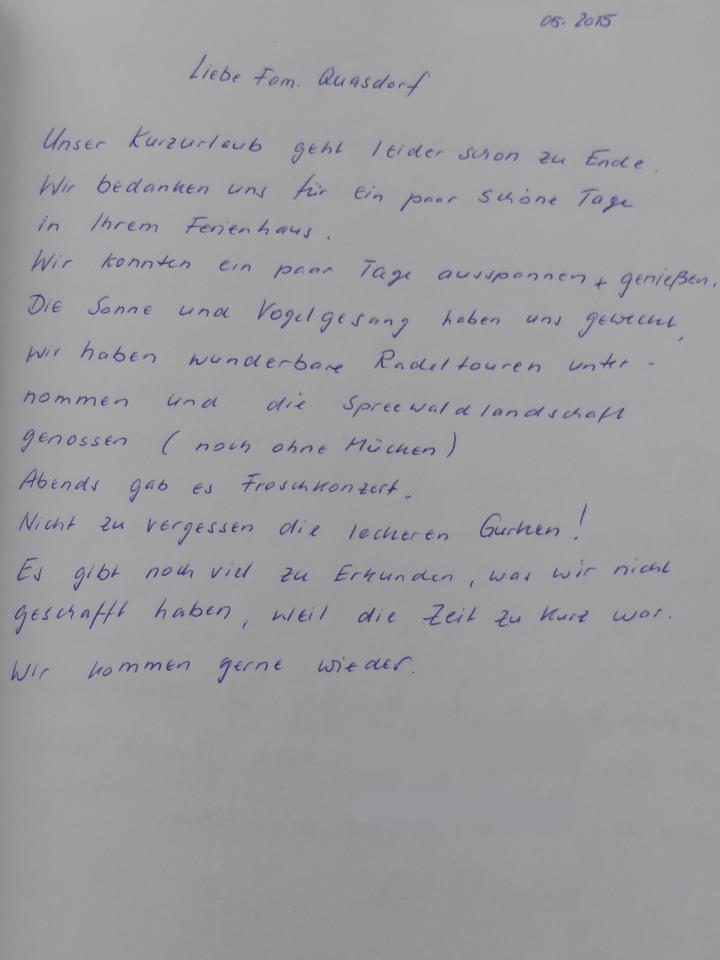 05. 2015
Liebe Fam. Quasdorf
Unser Kurzurlaub geht leider schon zu Ende.
Wir bedanken uns für ein paar schöne Tage
in Ihrem Ferienhaus.
Wir konnten ein paar Tage ausspannen + genießen.
Die Sonne und Vogelgesang haben uns geweckt,
wir haben wunderbare Radeltouren unter-
nommen und die Spreewaldlandschaft
genossen (noch ohne Mücken)
Abends gab es Froschkonzert.
Nicht zu vergessen die leckeren Gurken!
Es gibt noch viel zu Erkunden, was wir nicht
geschafft haben, weil die Zeit zu kurz war.
Wir kommen gerne wieder.